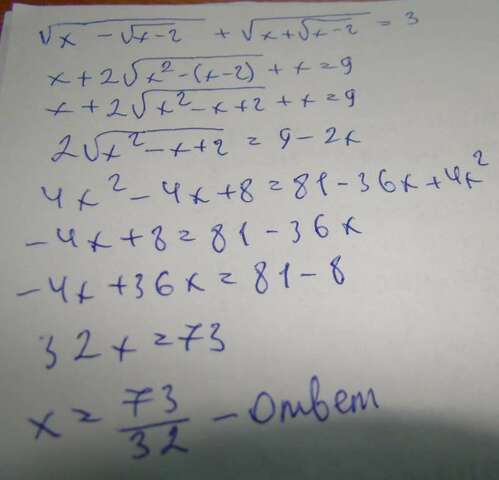 √(x - √(x-2)) + √(x+√(x-2)) = 3
x+2√(x²-(x-2)) + x = 9
x+2√(x²-x+2) + x = 9
2√(x²-x+2) = 9-2x
4x²-4x+8=81-36x+4x²
-4x+8=81-36x
-4x+36x=81-8
32x=73
x = 73/32 - ответ